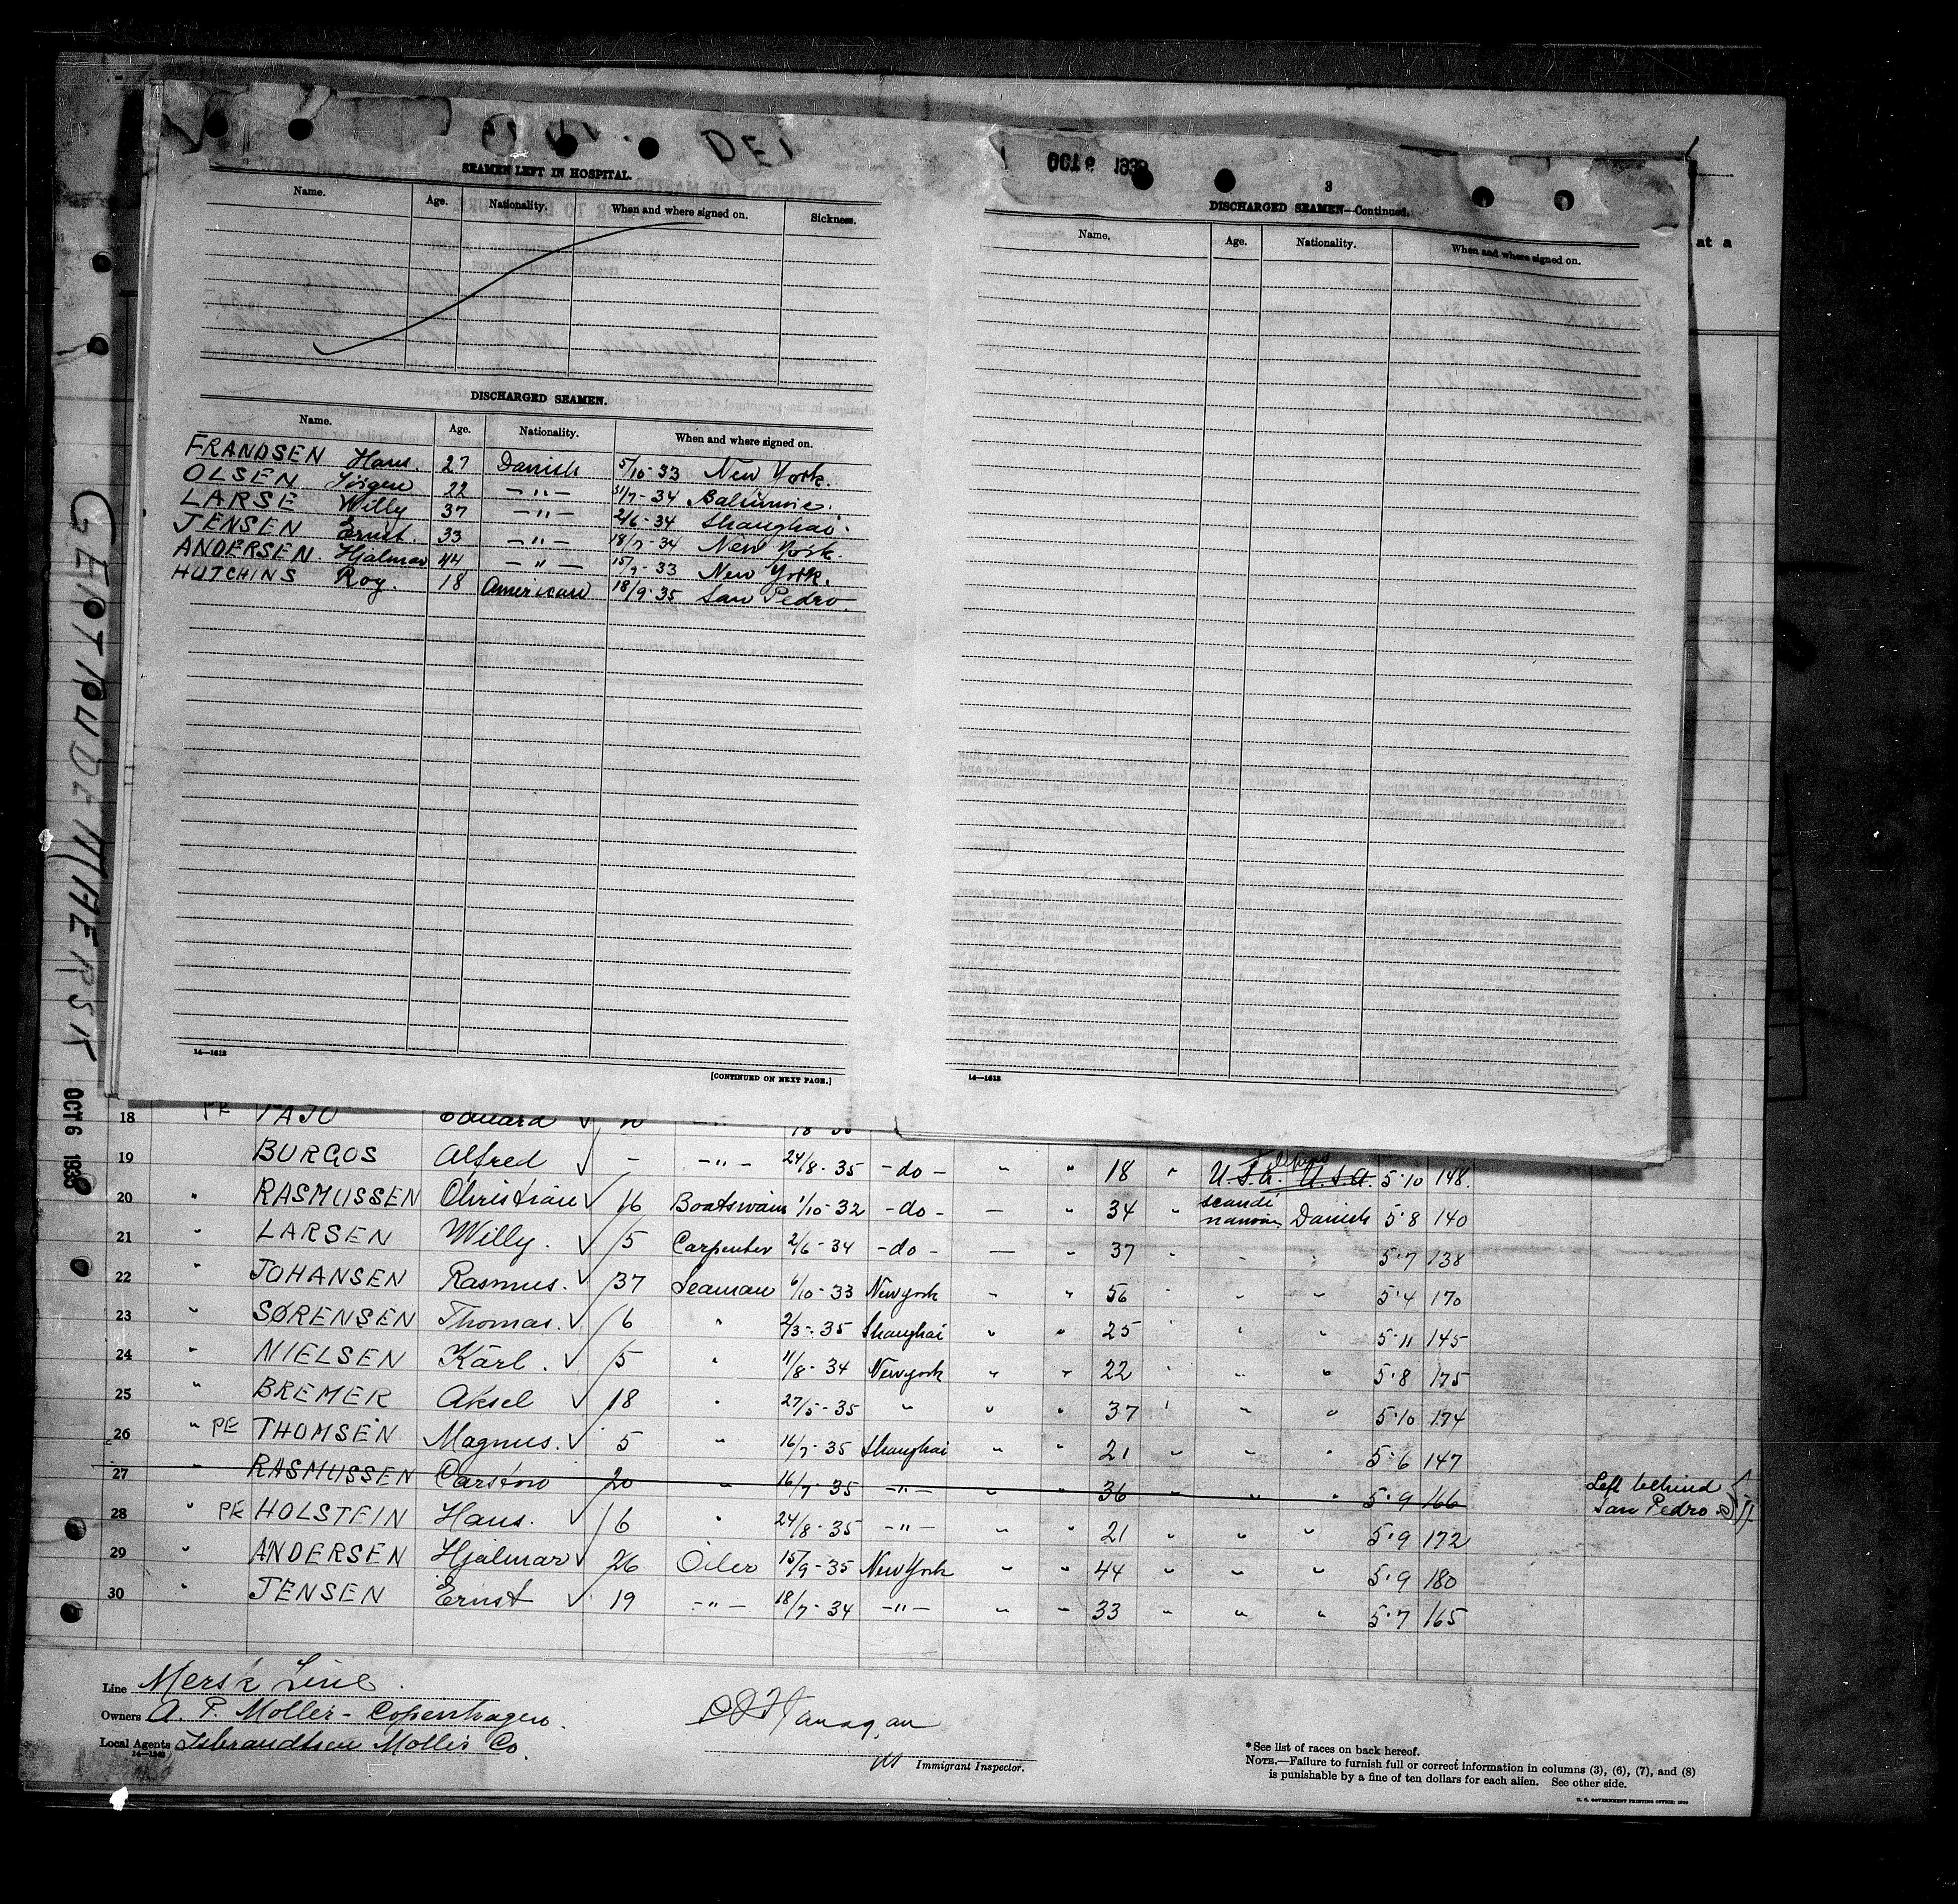 SEAMEN LEFT IN HOSPITAL.
Name. Age. Nationality. When and where signed on. Sickness.
DISCHARGED SEAMEN.
Name. Age. Nationality. When and where signed on.
FRANDSEN Hans. 27 Danish 5/10-33 New York.
OLSEN Jörgen 22 -"- 31/7-34 Baltimore.
LARSE Willy 37 -"- 2/6-34 Shanghai.
JENSEN Ernst. 33 -"- 18/7-34 New York.
ANDERSEN. Hjalmar 44 -"- 15/9-33 New York.
HUTCHINS Roy. 18 American 18/9-35 San Pedro.
14—1613
[CONTINUED ON NEXT PAGE.]
3
DISCHARGED SEAMEN—Continued.
Name. Age. Nationality. When and where signed on.
14—1613
at a
GERTRUDE MAERSK
OCT 6 1935
18 PE Eduard
19 BURGOS Alfred ✓ - -"- 24/8-35 -do- " " 18 " Filipino U.S.A. U.S.A. 5·10 148.
20 " RASMUSSEN Christian ✓ 16 Boatswain 1/10-32 -do- — " 34 " Scandinavian Danish 5·8 140
21 " LARSEN Willy. ✓ 5 Carpenter 2/6-34 -do- — " 37 " " " 5·7 138
22 " JOHANSEN Rasmus. ✓ 37 Seaman 6/10-33 New york " " 56 " " " 5·4 170
23 " SØRENSEN Thomas. ✓ 6 " 2/3-35 Shanghai " " 25 " " " 5·11 145
24 " NIELSEN Karl. ✓ 5 " 11/8-34 New york " " 22 " " " 5·8 175
25 " BREMER Aksel ✓ 18 " 27/5-35 " " " 37 " " " 5·10 174
26 " PE THOMSEN Magnus. ✓ 5 " 16/7-35 Shanghai " " 21 " " " 5·6 147
27 " RASMUSSEN Carsten 20 " 16/7-35 -"- " " 36 " " " 5·9 166 Left behind San Pedro
28 " PE HOLSTEIN Hans. ✓ 6 " 24/8-35 -"- " " 21 " " " 5·9 172
29 " ANDERSEN Hjalmar ✓ 26 Oiler 15/9-35 New York " " 44 " " " 5·9 180
30 " JENSEN Ernst ✓ 19 -"- 18/7-34 -"- " " 33 " " " 5·7 165
Line Mersk Line.
Owners A. P. Moller - Copenhagen.
Local Agents Isbrandtsen Moller Co.
14—1240
Immigrant Inspector.
*See list of races on back hereof.
NOTE.—Failure to furnish full or correct information in columns (3), (6), (7), and (8)
is punishable by a fine of ten dollars for each alien. See other side.
U. S. GOVERNMENT PRINTING OFFICE: